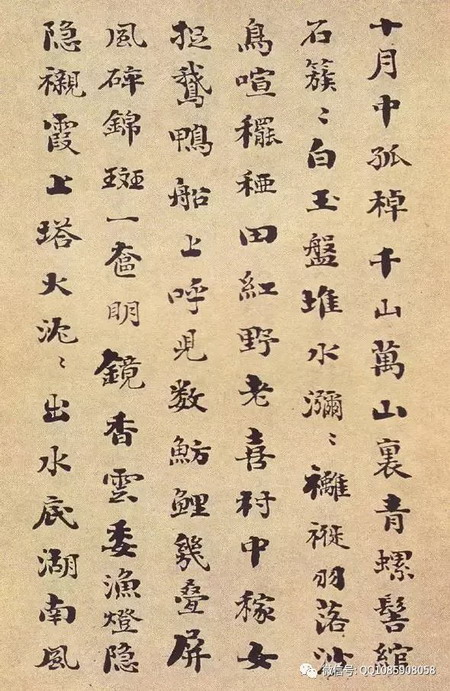 十月中孤棹千山萬山裏青螺髻綰
石簇〻白玉盤堆水瀰〻襹褷羽落沙
鳥喧䆉稏田紅野老喜村中稼女
捉鵞鴨船上呼兒数魴鯉幾疊屏
風碎錦斑一奩明鏡香雲委漁燈隐
隐襯霞上塔火沈〻出水底湖南風
微信号: QQ1085908058